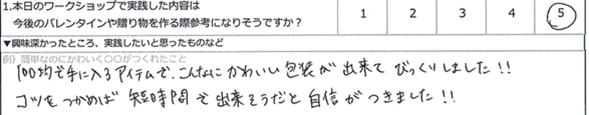 1.本日のワークショップで実践した内容は
今後のバレンタインや贈り物を作る際参考になりそうですか？
1 2 3 4 5
▼興味深かったところ、実践したいと思ったものなど
例）簡単なのにかわいく〇〇がつくれたこと
100均で手に入るアイテムで、こんなにかわいい包装が出来てびっくりしました!!
コツをつかめば短時間で出来そうだと自信がつきました!!